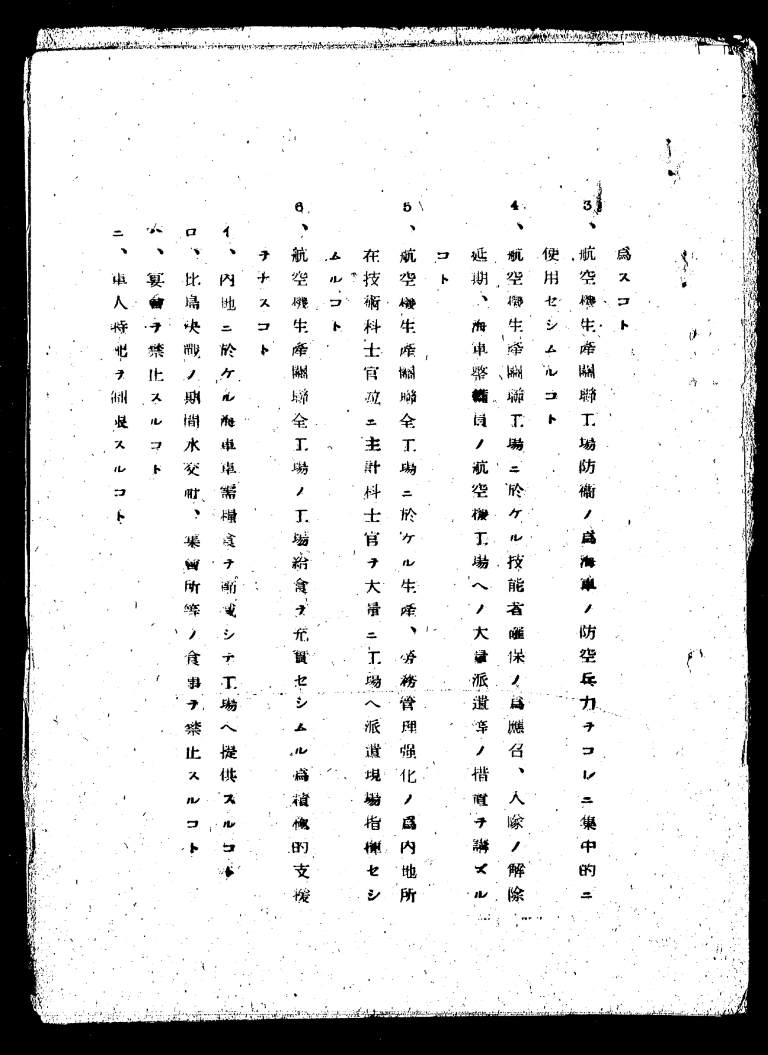 爲スコト
3、航空機生産關聯工場防衞ノ爲海軍ノ防空兵力ヲコレニ集中的ニ
使用セシムルコト
4、航空機生産關聯工場ニ於ケル技能者確保ノ爲應召、入隊ノ解除
延期、海軍整備員ノ航空機工場ヘノ大量派遣等ノ措置ヲ講ズル
コト
5、航空機生産關聯全工場ニ於ケル生産、労務管理强化ノ爲内地所
在技術科士官竝ニ主計科士官ヲ大量ニ工場ヘ派遣現場指揮セシ
ムルコト
6、航空機生産關聯全工場ノ工場給食ヲ充實セシムル爲積極的支援
ヲナスコト
イ、内地ニ於ケル海軍軍需糧食ヲ削減シテ工場ヘ提供スルコト
ロ、比島決戰ノ期間水交社、集會所等ノ食事ヲ禁止スルコト
ハ、宴會ヲ禁止スルコト
ニ、軍人特配ヲ制限スルコト